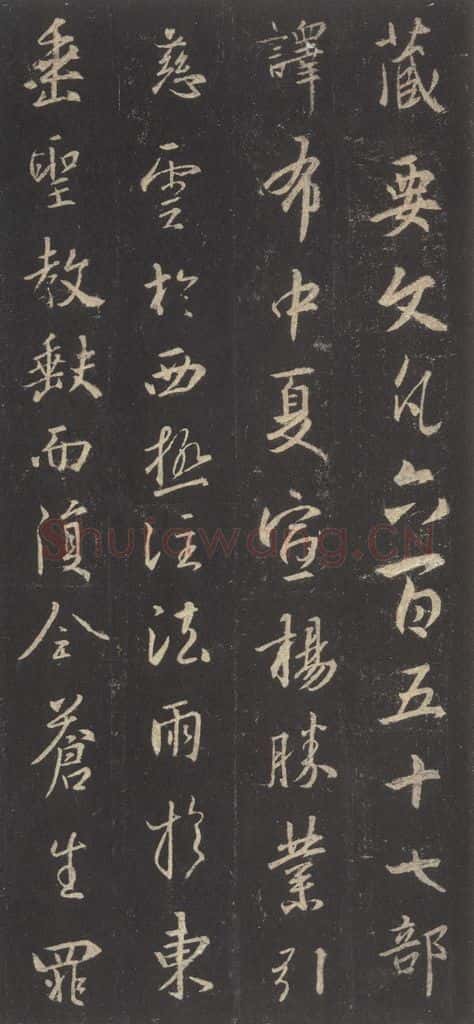 藏要文凡六百五十七部
譯布中夏宣楊勝業引
慈雲於西極注法雨於東
垂聖教缺而復全蒼生罪
Shufawang.CN